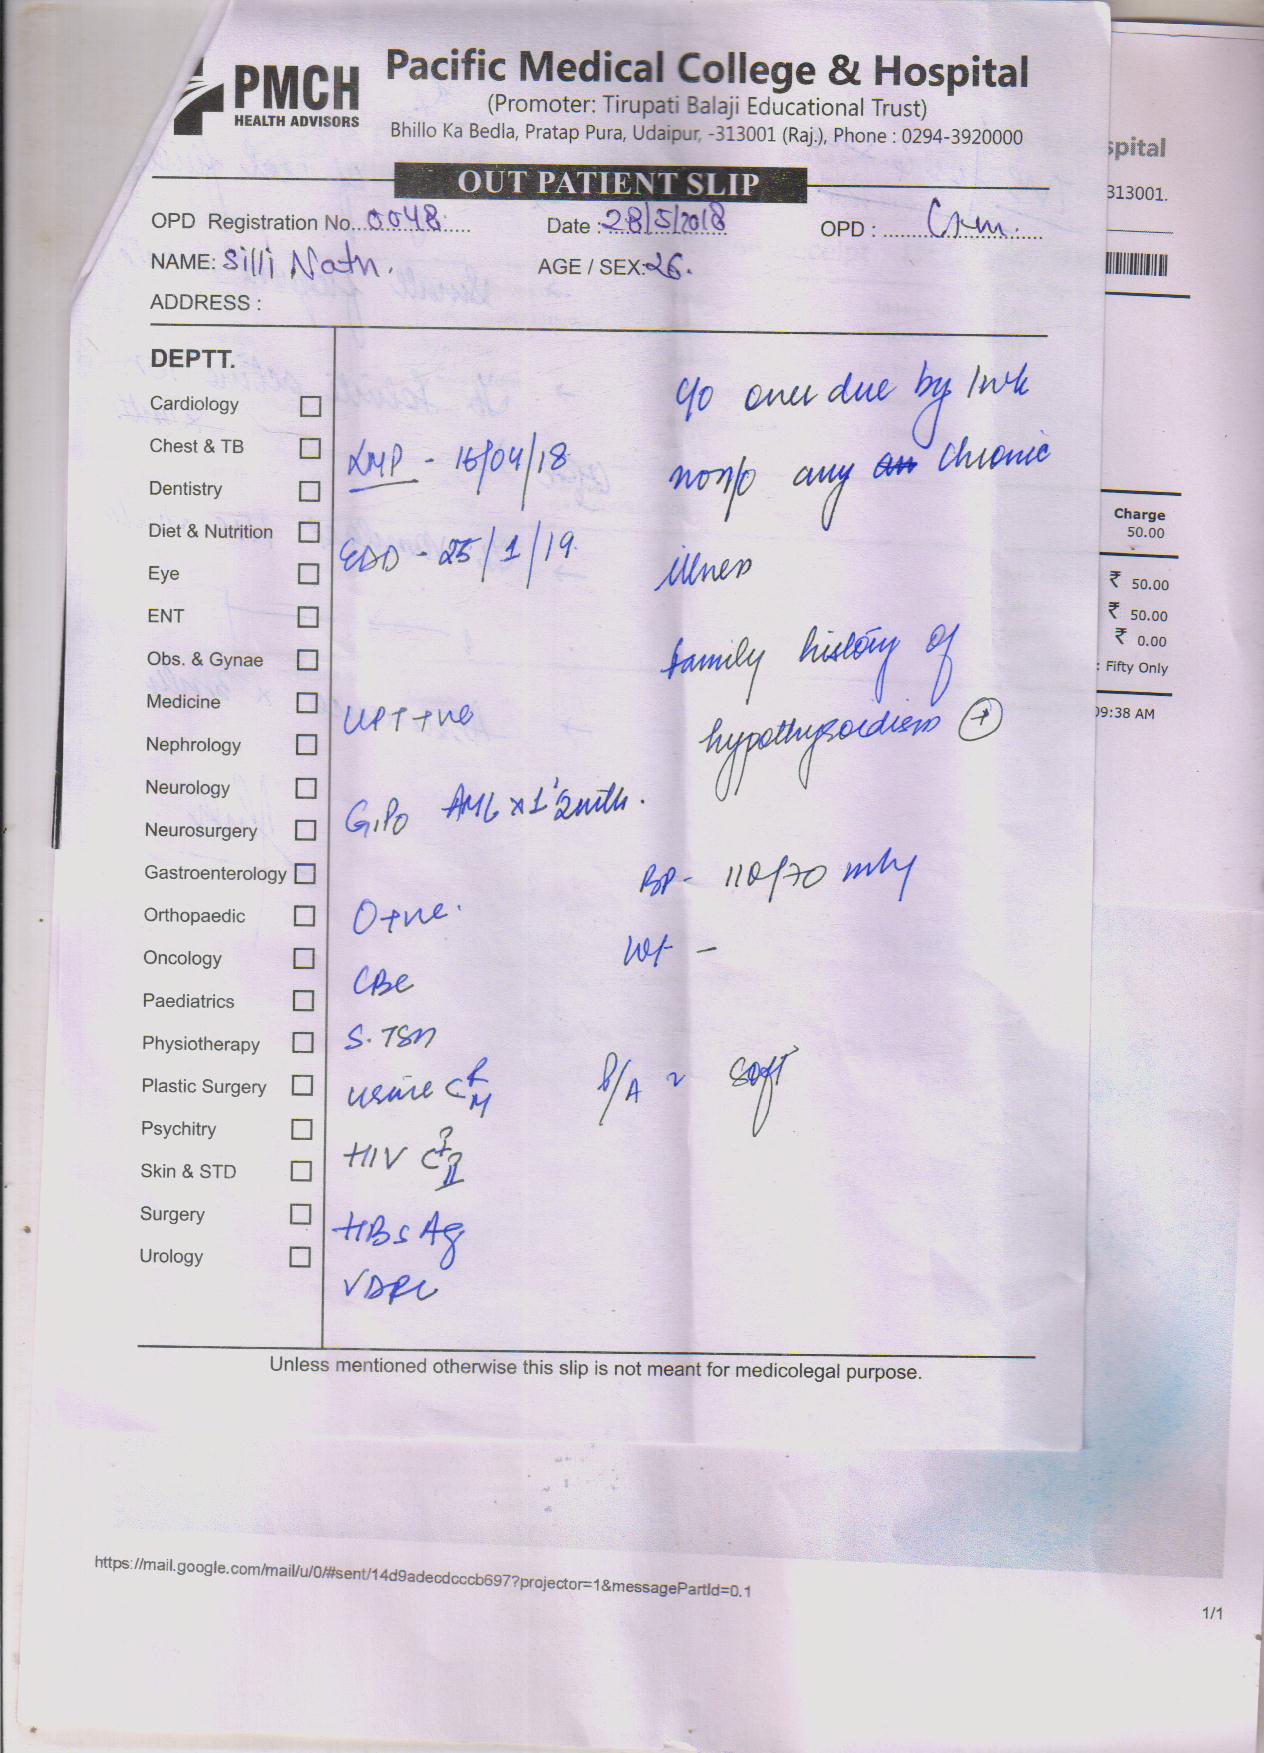 PMCH
HEALTH ADVISORS
Pacific Medical College & Hospital
(Promoter: Tirupati Balaji Educational Trust)
Bhillo Ka Bedla, Pratap Pura, Udaipur, -313001 (Raj.), Phone : 0294-3920000
OUT PATIENT SLIP
OPD Registration No. 0048 Date : 28/5/2018 OPD :
NAME: Silli Nath. AGE / SEX: 26.
ADDRESS :
DEPTT.
Cardiology
Chest & TB
Dentistry
Diet & Nutrition
Eye
ENT
Obs. & Gynae
Medicine
Nephrology
Neurology
Neurosurgery
Gastroenterology
Orthopaedic
Oncology
Paediatrics
Physiotherapy
Plastic Surgery
Psychitry
Skin & STD
Surgery
Urology
LMP - 16/04/18
EDD - 25/1/19.
UPT +ve
G1P0
O+ve.
CBC
S. TSH
urine C R/M
HIV
HBsAg
VDRL
c/o over due by 1wk
no h/o any chronic
illness
family history of
hypothyroidism +
BP - 110/70 mHg
Wt -
P/A soft
Unless mentioned otherwise this slip is not meant for medicolegal purpose.
spital
313001.
Charge
50.00
₹ 50.00
₹ 50.00
₹ 0.00
: Fifty Only
09:38 AM
https://mail.google.com/mail/u/0/#sent/14d9adecdcccb697?projector=1&messagePartId=0.1
1/1